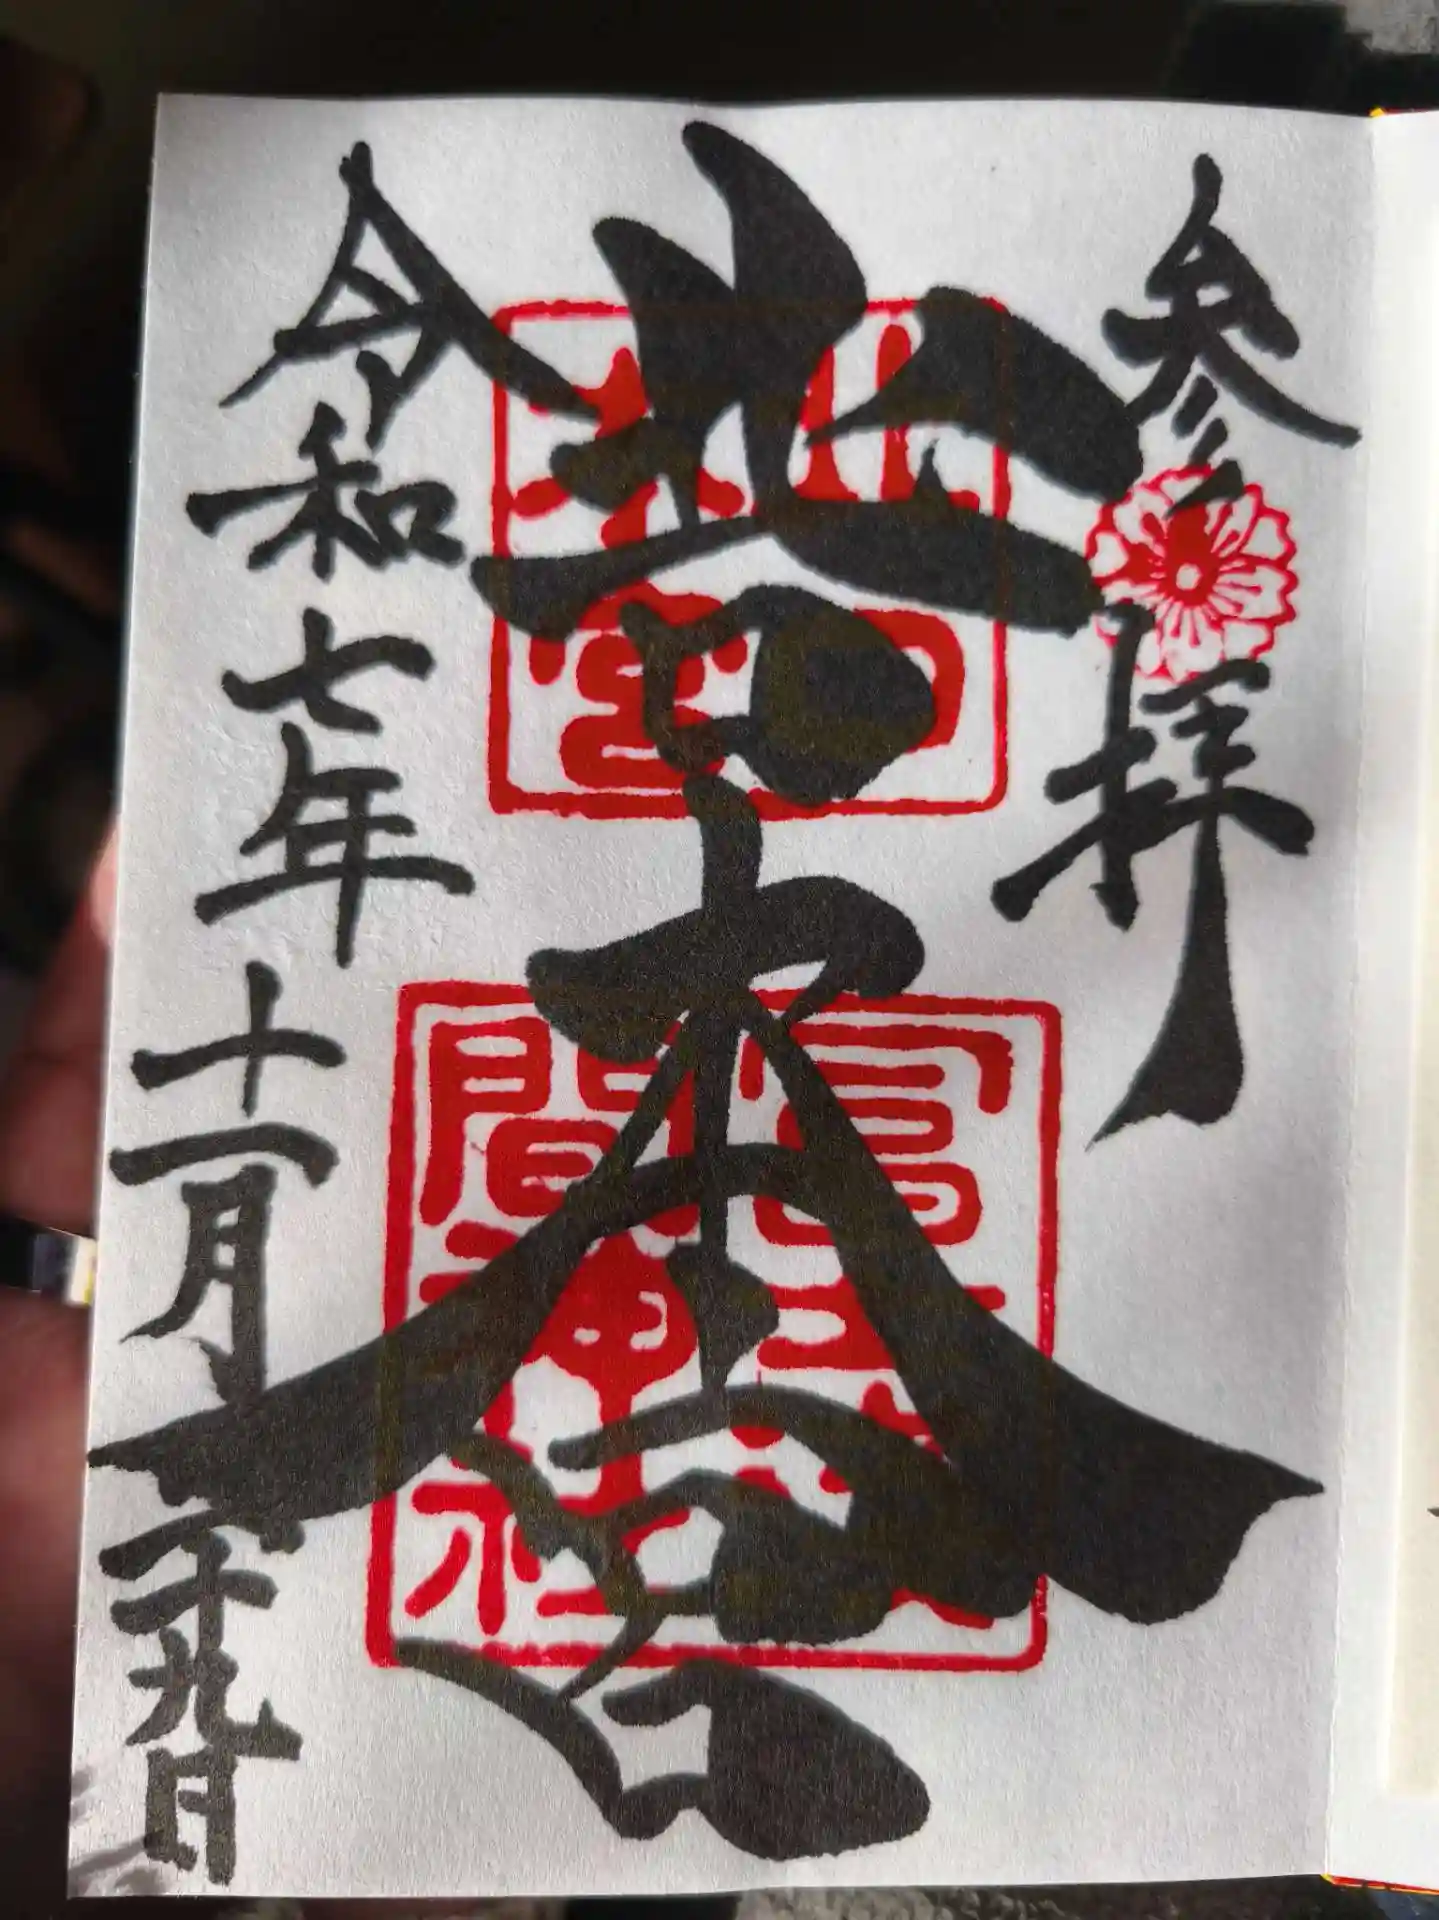 参拝
北口本宮
北口
本宮
冨士淺
間神社
令和七年十一月二十九日